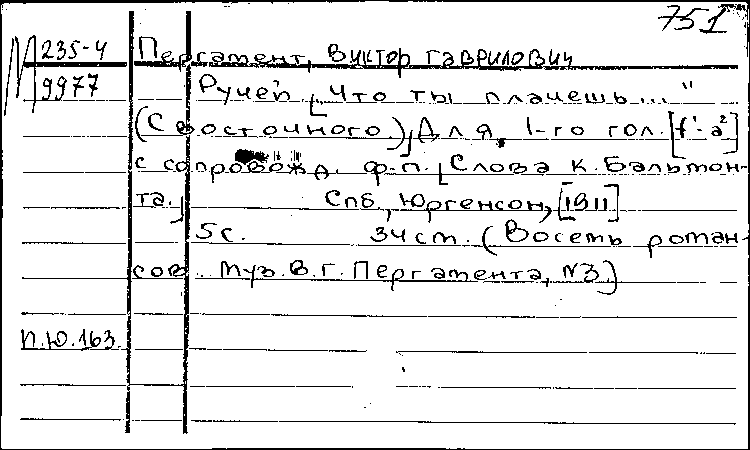 751
М 235-4
9977
Пергамент, Виктор Гаврилович
Ручей [„Что ты плачешь..."
(С восточного.)] Для 1-го гол. [f'-a²]
с сопровожд. ф-п. [Слова К. Бальмон-
та.] Спб., Юргенсон, [1911]
5с. 34 cm. (Восемь роман-
сов. Муз. В. Г. Пергамента, N3)
П.Ю.163.